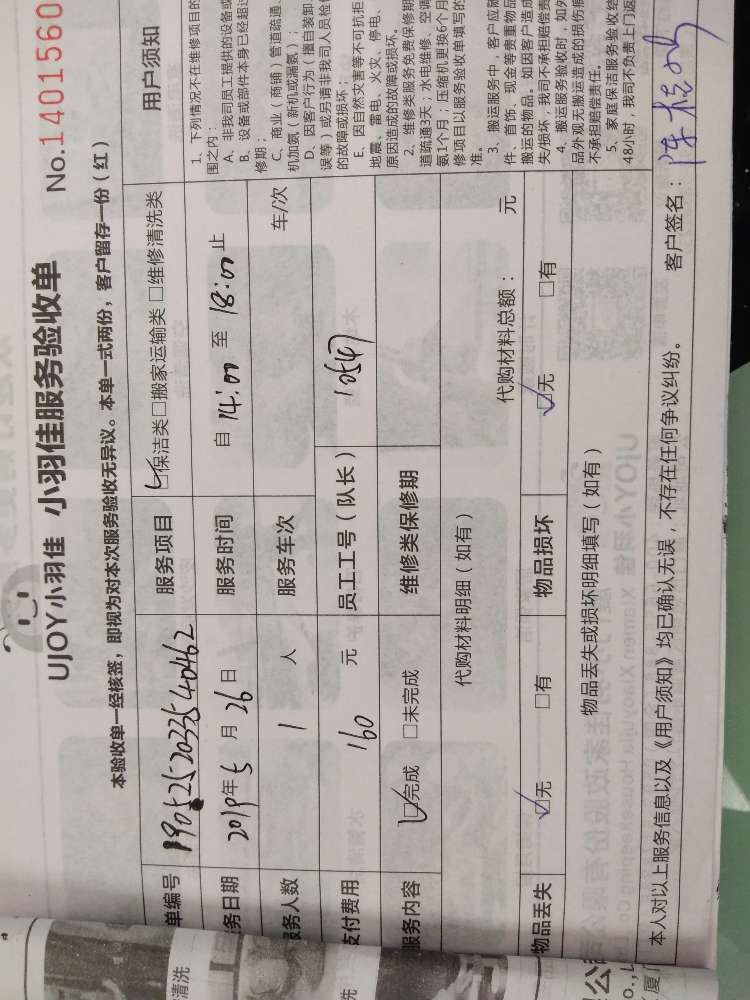 UJOY小羽佳 小羽佳服务验收单 No.1401560
本验收单一经核签，即视为对本次服务验收无异议。本单一式两份，客户留存一份（红）
单编号 190525203354040462 服务项目 保洁类 □搬家运输类 □维修清洗类
务日期 2019年5月26日 服务时间 自 14:00 至 18:00 止
服务人数 1 人 服务车次 车/次
支付费用 160 元 员工工号（队长） 10547
服务内容 □完成 □未完成 维修类保修期
代购材料明细（如有） 代购材料总额： 元
物品丢失 □无 □有 物品损坏 □无 □有
物品丢失或损坏明细填写（如有）
本人对以上服务信息以及《用户须知》均已确认无误，不存在任何争议纠纷。 客户签名：
用户须知
1、下列情况不在维修项目的
围之内：
A、非我司员工提供的设备或
B、设备或部件本身已经超过
修期；
C、商业（商铺）管道疏通
机加氨（新机或漏氨）；
D、因客户行为（擅自装卸
误等）或另请非我司人员检
的故障或损坏；
E、因自然灾害等不可抗拒
地震、雷电、火灾、停电、
原因造成的故障或损坏。
2、维修类服务免费保修期
道疏通3天；水电维修、空调
氨1个月；压缩机更换6个月
修项目以服务验收单填写的
准。
3、搬运服务中，客户应随
件、首饰、现金等贵重物品
搬运的物品。如因客户造成
失/损坏，我司不承担赔偿责
4、搬运服务验收时，如外
品外观无搬运造成的损伤痕
不承担赔偿责任。
5、家庭保洁服务验收结
48小时，我司不负责上门返
清洗
洗